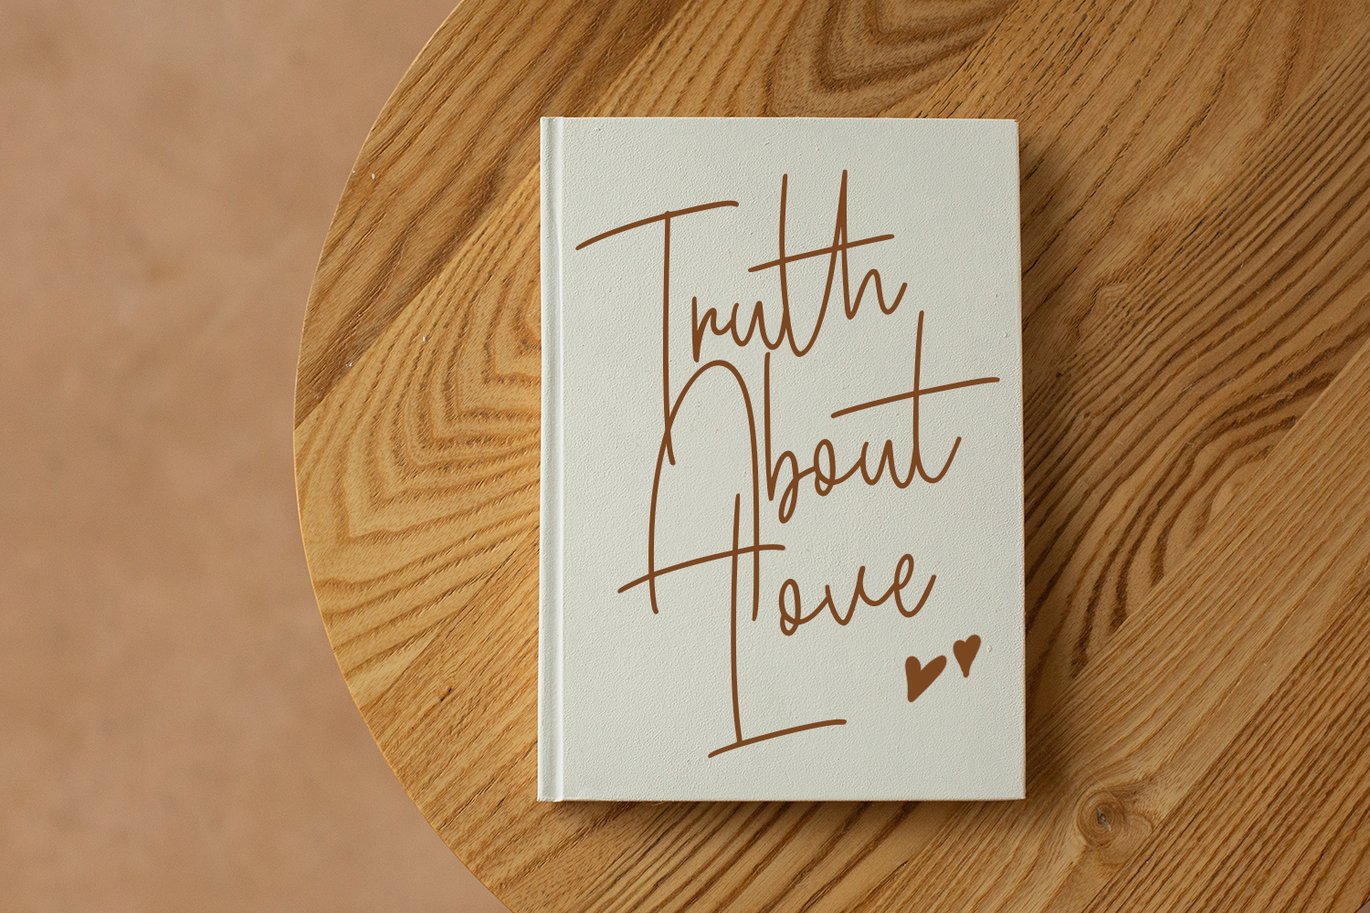 Truth
About
Love